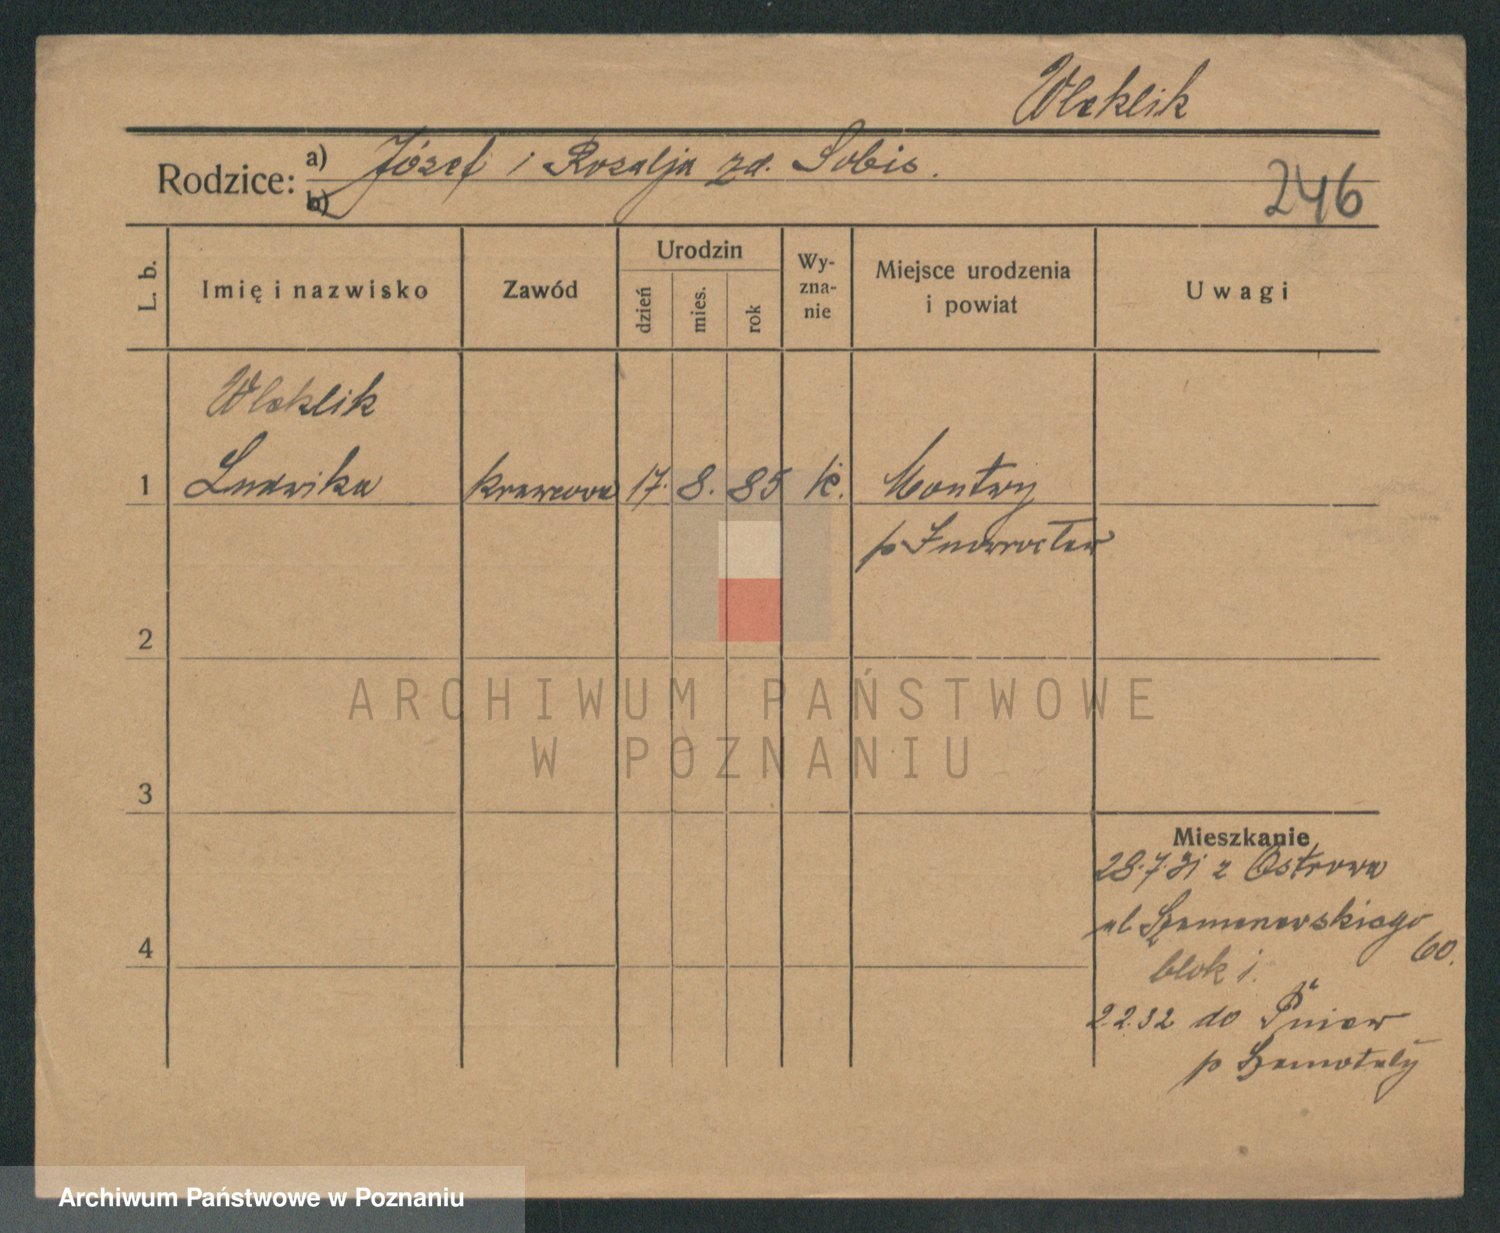 Wleklik
Rodzice: a) Józef i Rozalja zd. Sobis.
b)
246
L. b.
Imię i nazwisko
Zawód
Urodzin
dzień
mies.
rok
Wy-
zna-
nie
Miejsce urodzenia
i powiat
Uwagi
Wleklik
1 Ludwika krawcowa 17. 8. 85 k. Montwy
p Inowrocław
2
3
4
Mieszkanie
28.7.31 z Ostrowa
ul 60.
blok i.
2.2.32 do Pniew
p Szamotuły
ARCHIWUM PAŃSTWOWE
W POZNANIU
Archiwum Państwowe w Poznaniu